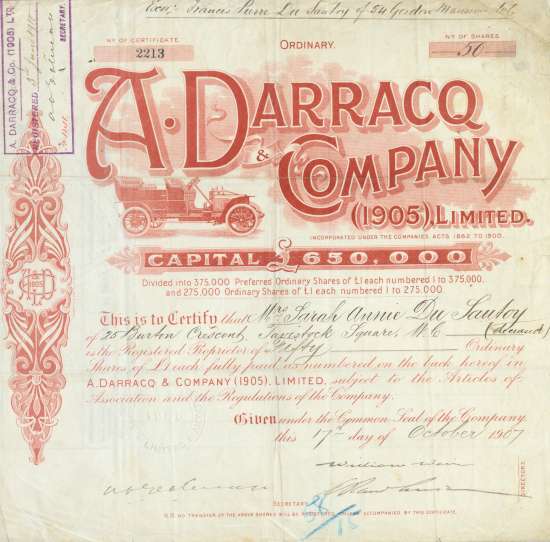 Francis Pierre Du Sautoy of 54 Gordon Mansions
No OF CERTIFICATE
2213
ORDINARY.
No OF SHARES
50
A. DARRACQ & Co. (1905) LTD
REGISTERED
SECRETARY.
A. DARRACQ
& COMPANY
(1905), LIMITED.
INCORPORATED UNDER THE COMPANIES ACTS 1862 TO 1900.
CAPITAL £650,000
Divided into 375,000 Preferred Ordinary Shares of £1 each numbered 1 to 375,000.
and 275,000 Ordinary Shares of £1 each numbered 1 to 275,000.
This is to Certify that Mrs Sarah Annie Du Sautoy
of 25 Burton Crescent, Tavistock Square, W.C
is the Registered Proprietor of Fifty Ordinary
Shares of £1 each fully paid as numbered on the back hereof in
A. DARRACQ & COMPANY (1905), LIMITED, subject to the Articles of
Association and the Regulations of the Company.
Given under the Common Seal of the Company
this 17th day of October 1907
DIRECTORS
SECRETARY
N.B. NO TRANSFER OF THE ABOVE SHARES WILL BE REGISTERED UNLESS ACCOMPANIED BY THIS CERTIFICATE.